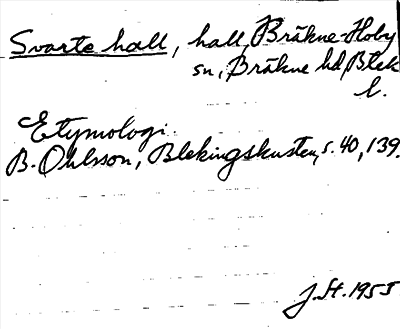 Svarte hall, hall, Bräkne-Hoby
sn, Bräkne hd, Blek
l.
Etymologi.
B. Ohlsson, Blekingskusten, s. 40, 139.
J. St. 1955